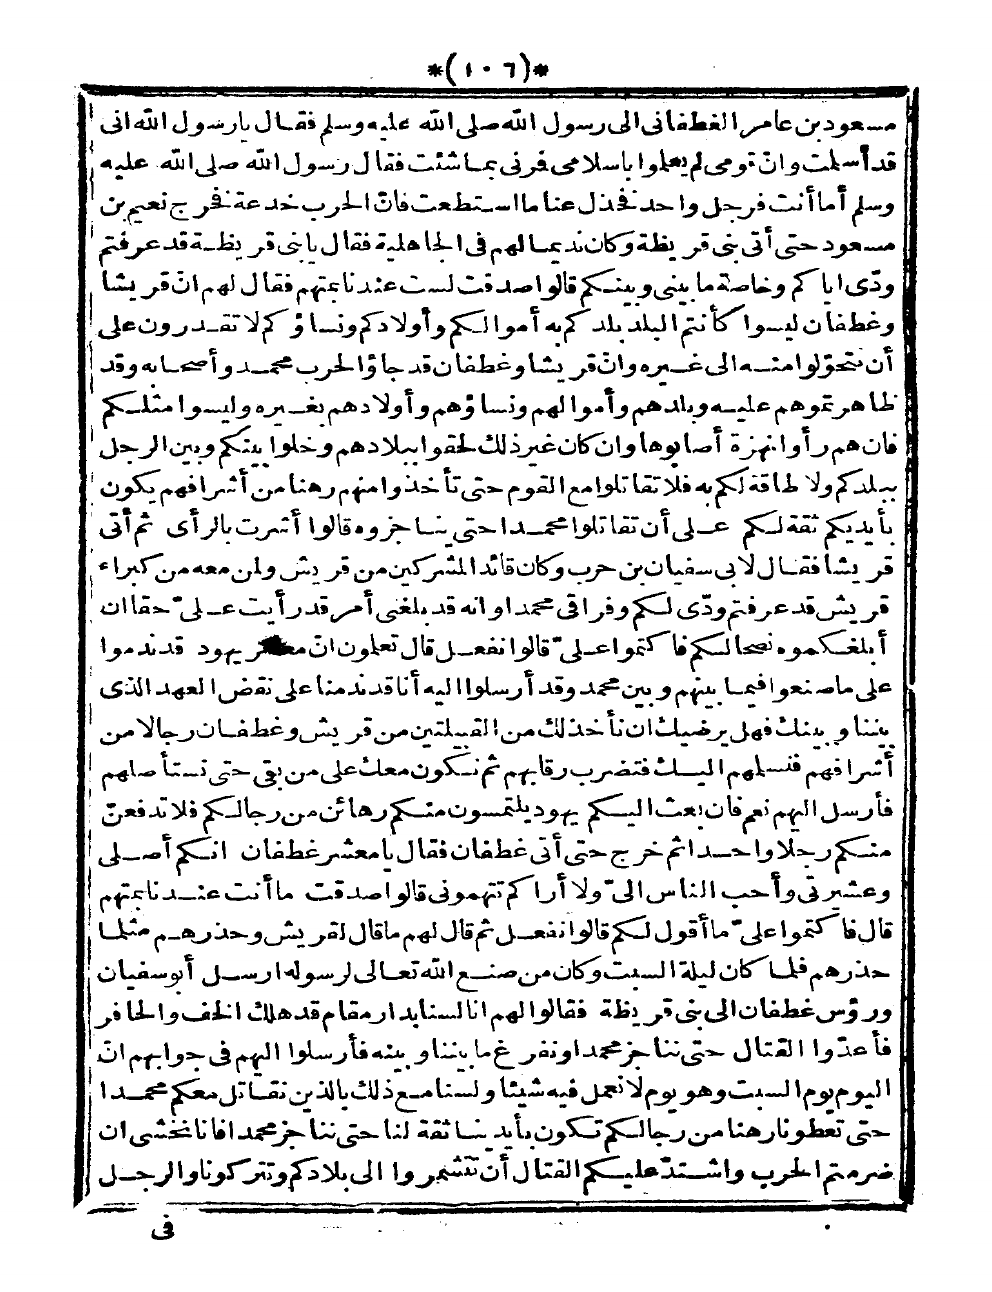 *(١٠٦)*
مسعود بن عامر الغطفانى الى رسول الله صلى الله عليه وسلم فقال يا رسول الله انى
قد أسلمت وانّ قومى لم يعلموا باسلامى فمرنى بما شئت فقال رسول الله صلى الله عليه
وسلم أما أنت فرجل واحد فخذل عنا ما استطعت فانّ الحرب خدعة فخرج نعيم بن
مسعود حتى أتى بنى قريظة وكان نديما لهم فى الجاهلية فقال يا بنى قريظة قد عرفتم
ودّى اياكم وخاصة ما بينى وبينكم قالوا صدقت لست عندنا بمتهم فقال لهم انّ قريشا
وغطفان ليسوا كأنتم البلد بلدكم به أموالكم وأولادكم ونساؤكم لا تقدرون على
أن تتحوّلوا منه الى غيره وانّ قريشا وغطفان قد جاؤا لحرب محمد وأصحابه وقد
ظاهرتموهم عليه وبلدهم وأموالهم ونساؤهم وأولادهم بغيره وليسوا مثلكم
فان هم رأوا نهزة أصابوها وان كان غير ذلك لحقوا ببلادهم وخلوا بينكم وبين الرجل
ببلدكم ولا طاقة لكم به فلا تقاتلوا مع القوم حتى تأخذوا منهم رهنا من أشرافهم يكون
بأيديكم ثقة لكم على أن تقاتلوا محمدا حتى يناجزوه قالوا أشرت بالرأى ثم أتى
قريشا فقال لابى سفيان بن حرب وكان قائد المشركين من قريش ولمن معه من كبراء
قريش قد عرفتم ودّى لكم وفراقى محمدا وانه قد بلغنى أمر قد رأيت علىّ حقا ان
أبلغكموه نصحا لكم فاكتموا علىّ قالوا نفعل قال تعلمون انّ معشر يهود قد ندموا
على ما صنعوا فيما بينهم وبين محمد وقد أرسلوا اليه أنا قد ندمنا على نقض العهد الذى
بيننا وبينك فهل يرضيك ان نأخذ لك من القبيلتين من قريش وغطفان رجالا من
أشرافهم فنسلهم اليك فتضرب رقابهم ثم نكون معك على من بقى حتى نستأصلهم
فأرسل اليهم نعم فان بعث اليكم يهود يلتمسون منكم رهائن من رجالكم فلا تدفعنّ
منكم رجلا واحدا ثم خرج حتى أتى غطفان فقال يا معشر غطفان انكم أصلى
وعشيرتى وأحب الناس الىّ ولا أراكم تتهمونى قالوا صدقت ما أنت عندنا بمتهم
قال فاكتموا علىّ ما أقول لكم قالوا نفعل ثم قال لهم ما قال لقريش وحذرهم مثلما
حذرهم فلما كان ليلة السبت وكان من صنع الله تعالى لرسوله ارسل أبو سفيان
ورؤس غطفان الى بنى قريظة فقالوا لهم انا لسنا بدار مقام قد هلك الخف والحافر
فأعدّوا القتال حتى نناجز محمدا ونفرغ ما بيننا وبينه فأرسلوا اليهم فى جوابهم انّ
اليوم يوم السبت وهو يوم لا نعمل فيه شيئا ولسنا مع ذلك بالذين نقاتل معكم محمدا
حتى تعطونا رهنا من رجالكم تكون بأيدينا ثقة لنا حتى نناجز محمدا فانا نخشى ان
ضرمتم الحرب واشتدّ عليكم القتال أن تتشمروا الى بلادكم وتتركونا والرجل
فى